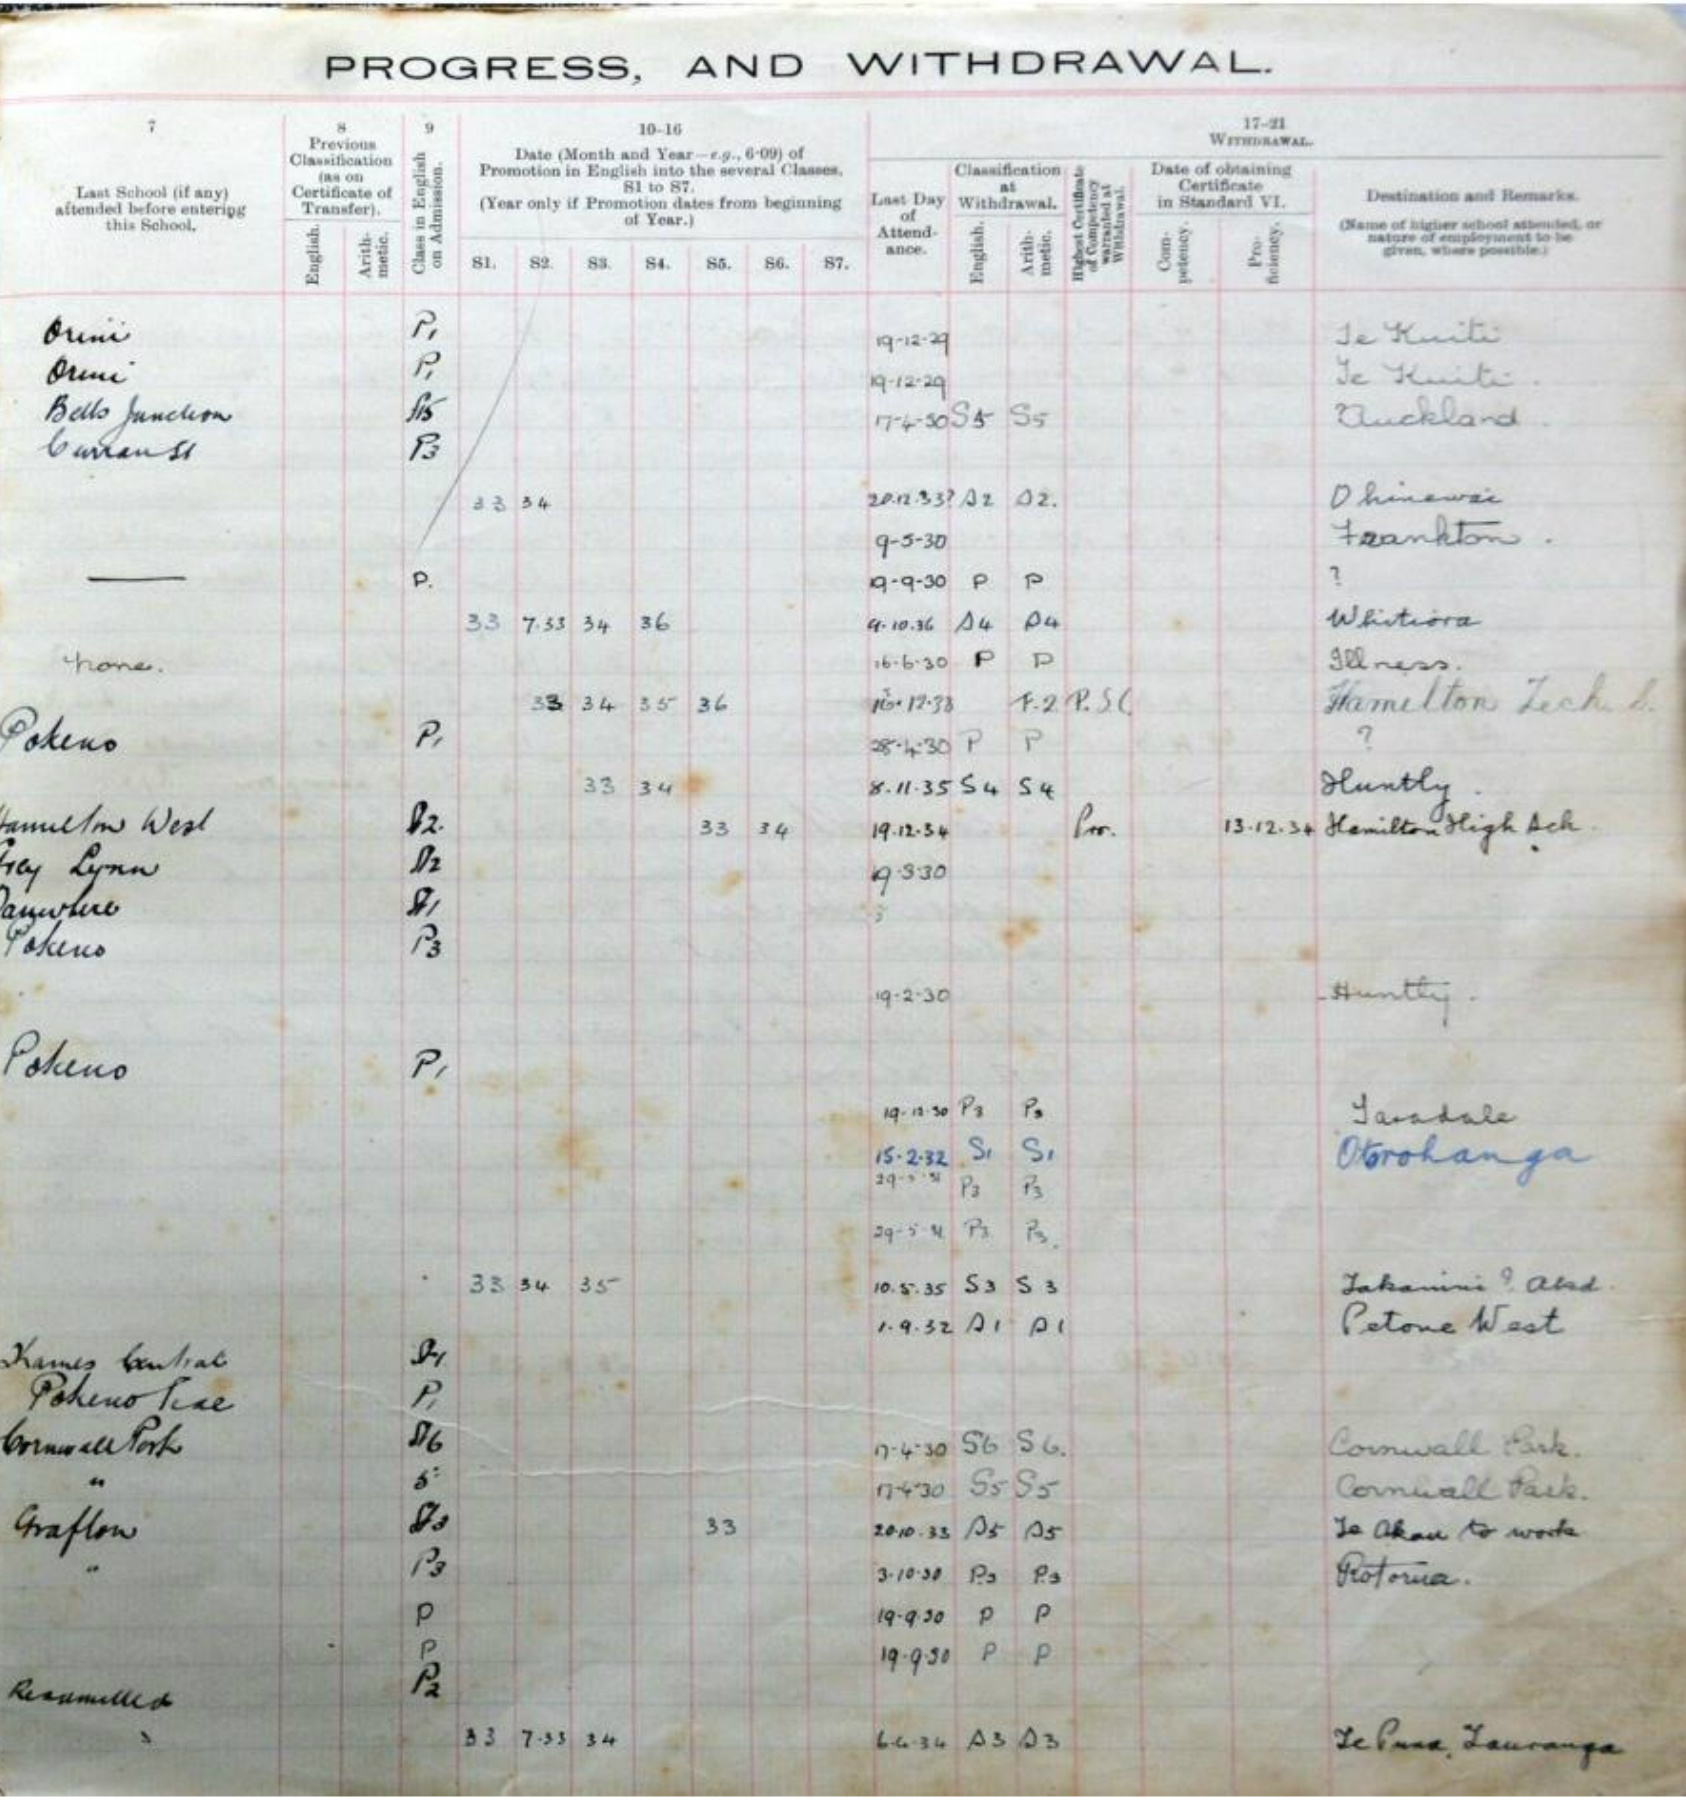 PROGRESS, AND WITHDRAWAL.
7
8
9
10-16
17-21
Last School (if any) attended before entering this School.
Previous Classification (as on Certificate of Transfer).
English.
Arith-metic.
Class in English on Admission.
Date (Month and Year—e.g., 6-09) of Promotion in English into the several Classes, S1 to S7.
(Year only if Promotion dates from beginning of Year.)
S1. S2. S3. S4. S5. S6. S7.
WITHDRAWAL.
Last Day of Attend-ance.
Classification at Withdrawal.
English.
Arith-metic.
Highest Certificate of Competency warranted at Withdrawal.
Date of obtaining Certificate in Standard VI.
Com-petency.
Pro-ficiency.
Destination and Remarks.
(Name of higher school attended, or nature of employment to be given, where possible.)
Orini P1 19-12-29 Te Kuiti
Orini P1 19-12-29 Te Kuiti.
Bells Junction S5 17-4-30 S5 S5 Auckland.
Curran St P3
33 34 20.12.33? S2 S2. Ohinewai
9-5-30 Frankton.
— P. 19-9-30 P P ?
33 7.33 34 36 9.10.36 S4 S4 Whitiora
none. 16-6-30 P P Illness.
33 34 35 36 F.2 P.S.C. Hamilton Tech. S.
Pokeno P1 28-4-30 P P ?
33 34 8.11.35 S4 S4 Huntly.
Hamilton West S2. 33 34 19.12.34 Pro. 13.12.34 Hamilton High Sch.
Grey Lynn S2 19-3-30
S1
Pokeno P3
19-2-30 Huntly.
Pokeno P1
19-12-30 P3 P3 Taradale
15-2-32 S1 S1 Otorohanga
P3 P3
29-5-31 P3 P3.
33 34 35 10.5.35 S3 S3 Takanini? Akd.
1.9.32 S1 S1 Petone West
Thames Central S4
Pokeno P1
Cornwall Park S6 17-4-30 S6 S6. Cornwall Park.
" 5 17-4-30 S5 S5 Cornwall Park.
Grafton S3 33 20.10.33 S5 S5 Te Akau to work
" P3 3-10-30 P3 P3 Rotorua.
P 19-9-30 P P
P 19-9-30 P P
Readmitted P2
" 33 7.33 34 6.4.34 S3 S3 Te Puna, Tauranga